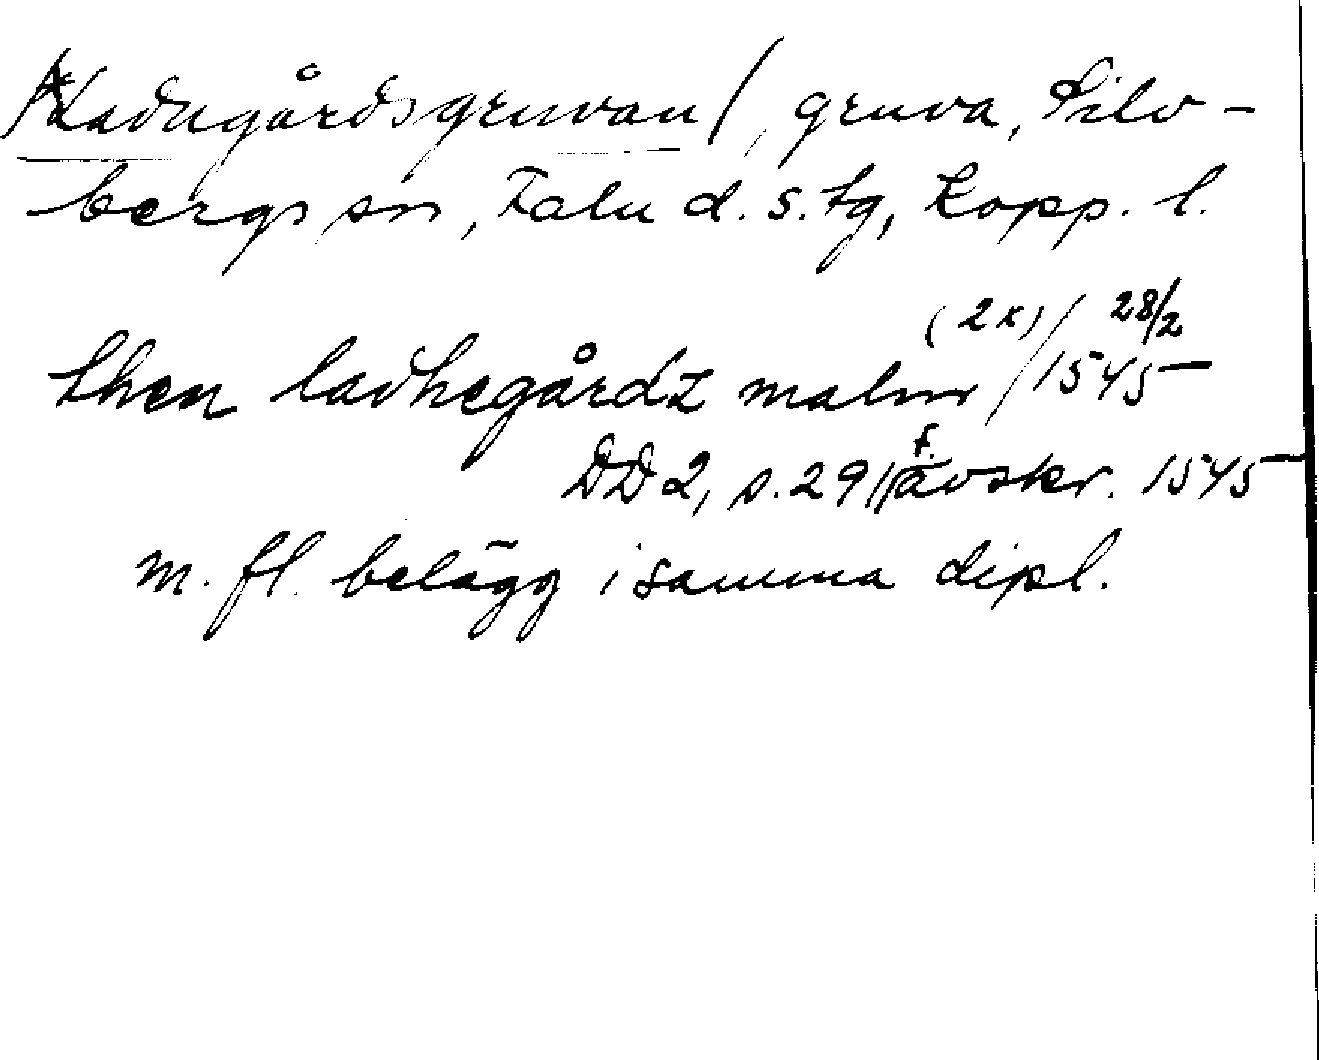 /*Ladugårdsgruvan/, gruva, Silv-
bergs sn, Falu d. s. tg, Kopp. l.
then ladhegårdz malm (2x)/ 28/2 1545
DD 2, s. 291 f. avskr. 1545
m. fl. belägg i samma dipl.